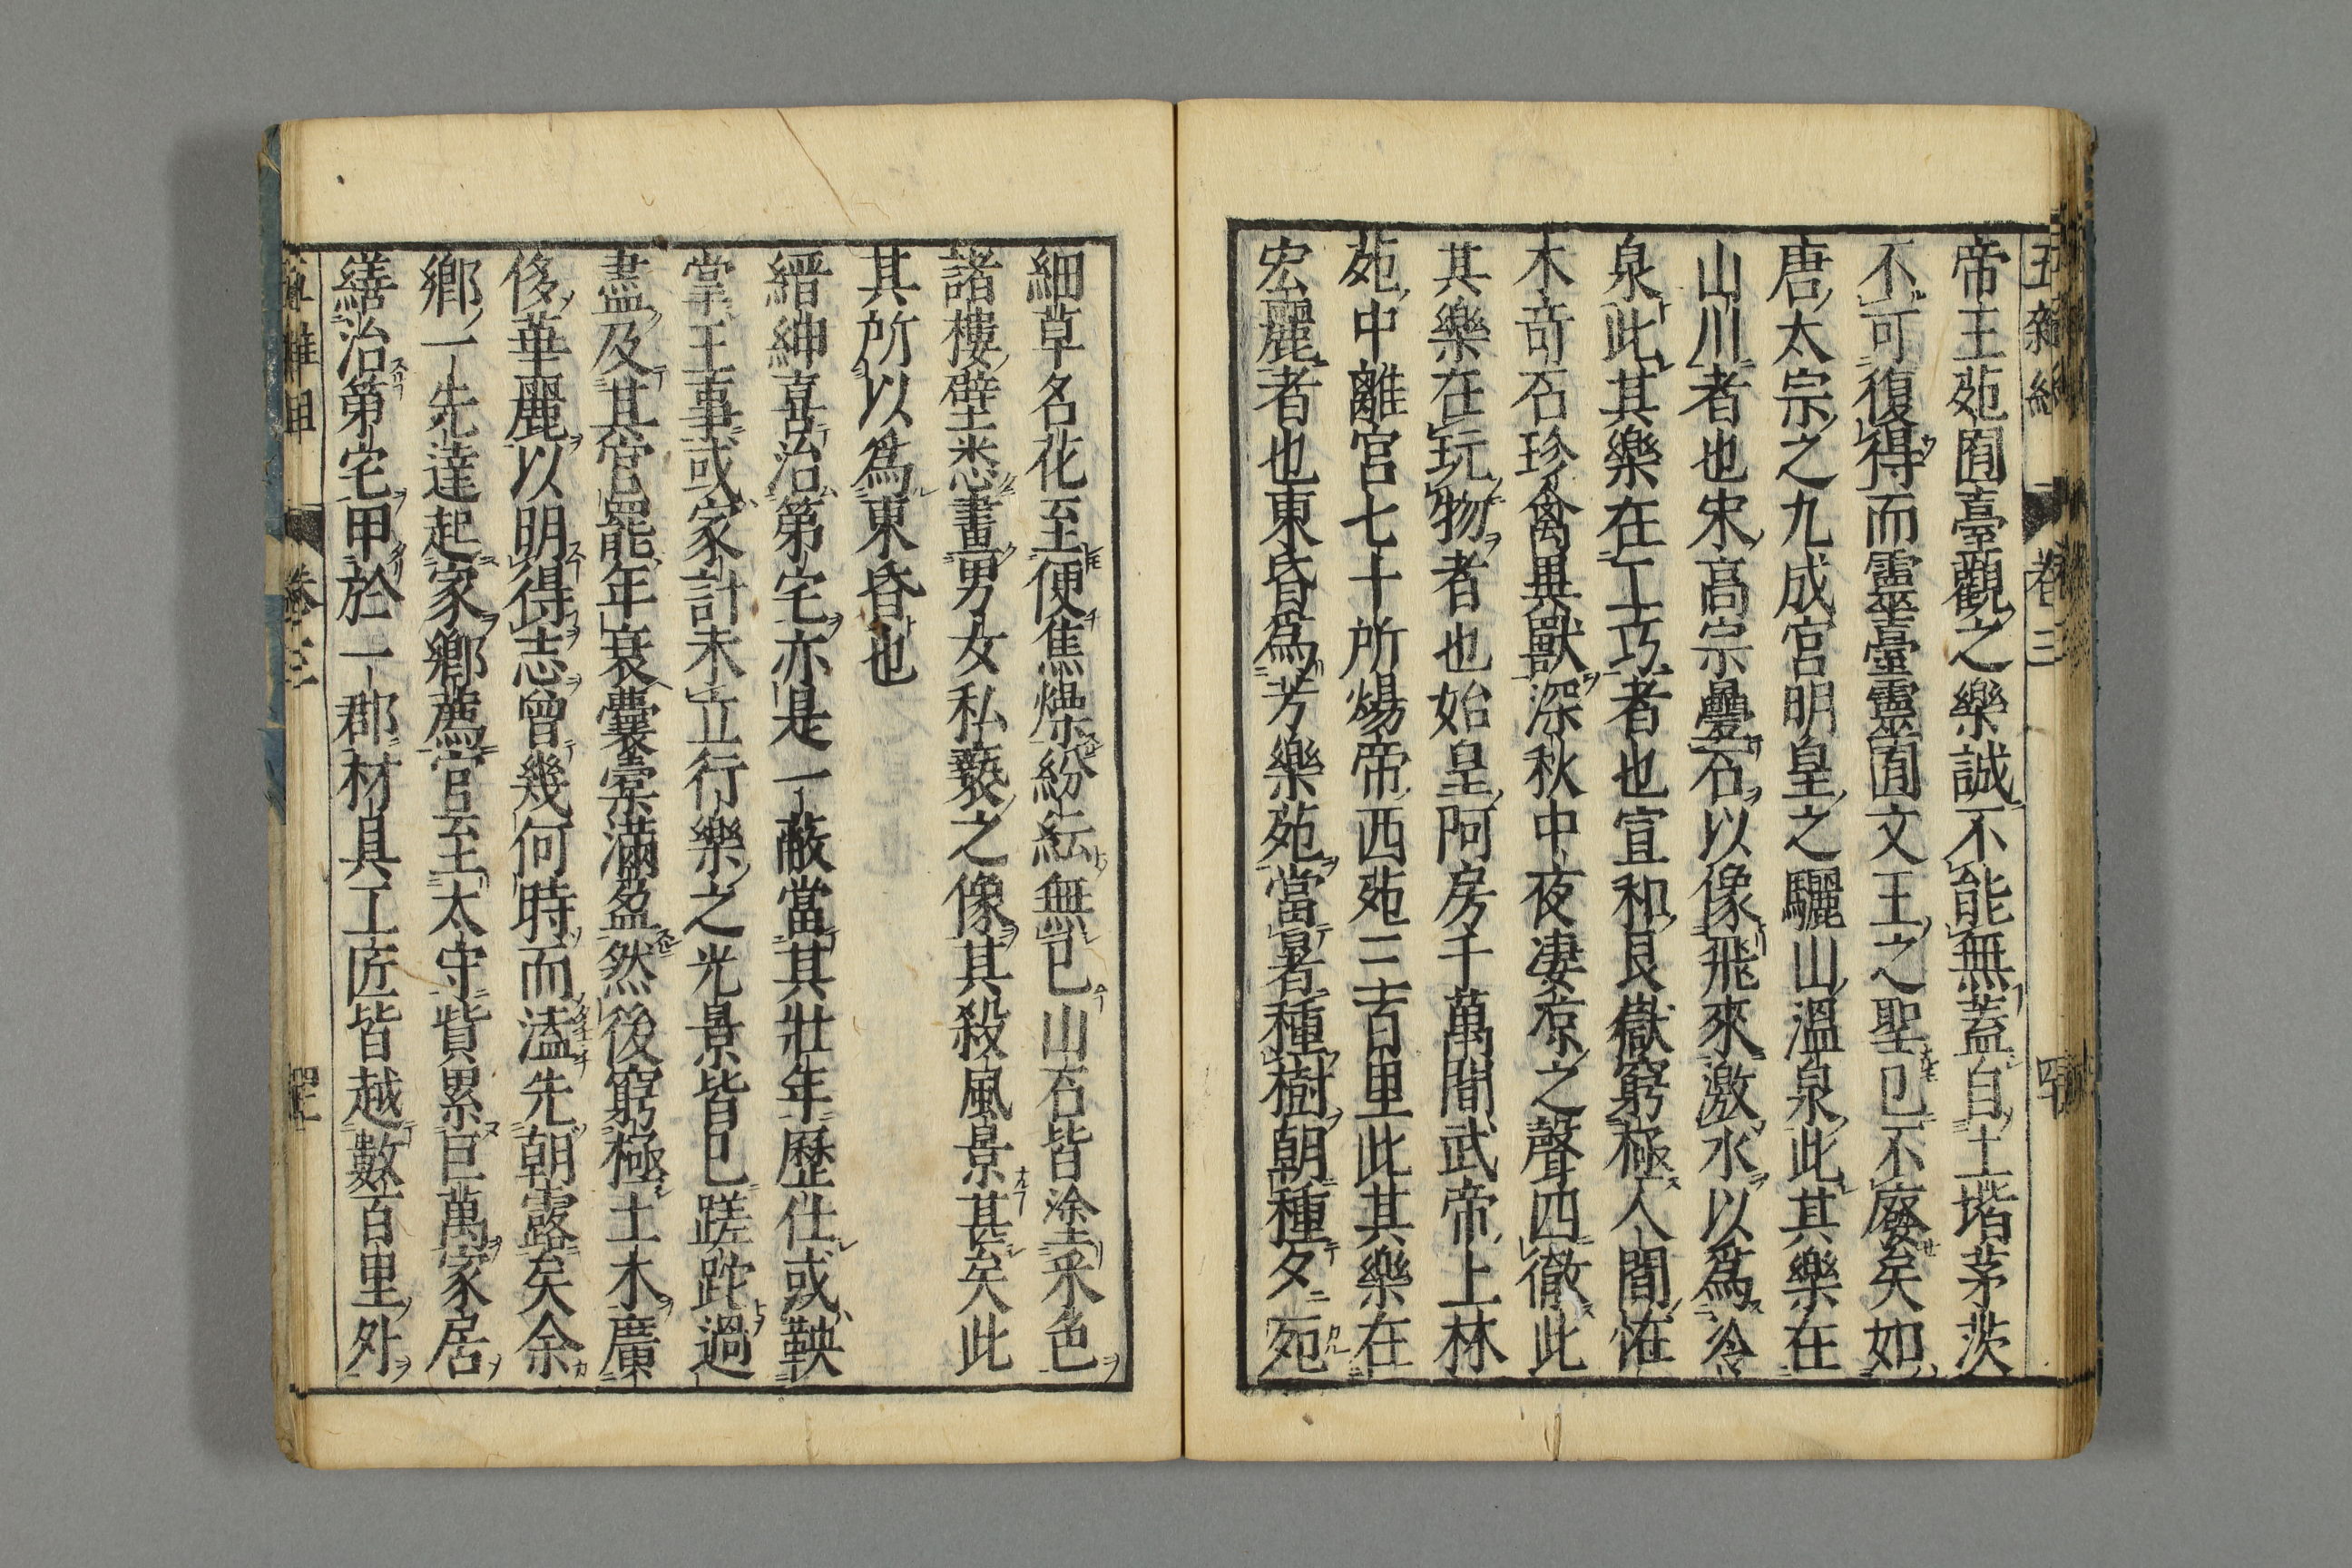 帝王苑囿臺觀之樂誠不能無蓋自土堦茅茨
不可復得而靈臺靈囿文王之聖已不廢矣如
唐太宗之九成宮明皇之驪山溫泉此其樂在
山川者也宋高宗疊石以像飛來激水以爲冷
泉此其樂在工巧者也宣和艮嶽窮極人間怪
木奇石珍禽異獸深秋中夜凄凉之聲四徹此
其樂在玩物者也始皇阿房千萬間武帝上林
苑中離宮七十所煬帝西苑三百里此其樂在
宏麗者也東昏爲芳樂苑當暑種樹朝種夕死
細草名花至便焦燥紛紜無已山石皆塗采色
諸樓壁悉畫男女私褻之像其殺風景甚矣此
其所以爲東昏也
縉紳喜治第宅亦是一蔽當其壯年歷仕或鞅
掌王事或家計未立行樂之光景皆已蹉跎過
盡及其官罷年衰囊槖滿盈然後窮極土木廣
侈華麗以明得志曾幾何時而溘先朝露矣余
鄉一先達起家鄉薦官至太守貲累巨萬家居
繕治第宅甲於一郡材具工匠皆越數百里外
卷三